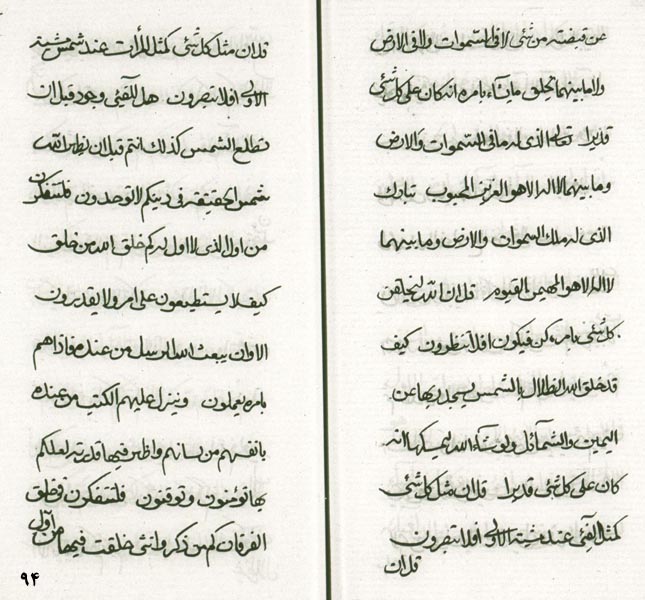 عن قبضته من شئ لا فى السموات ولا فى الارض
ولا ما بينهما تخلق ما يشاء بامره انه كان على كل شئ
قديرا تعالى الذى له ما فى السموات والارض
وما بينهما لا اله الا هو العزيز المحبوب تبارك
الذى له ملك السموات والارض وما بينهما
لا اله الا هو المهيمن القيوم قل ان الله ليخلقن
كل شئ بامره كن فيكون افلا تنظرون كيف
قد خلق الله الظلال بالشمس يسجد ربها عن
اليمين والشمائل ولو شاء الله ليمسكها انه
كان على كل شئ قديرا قل ان مثل كل شئ
كمثل الفئ عند مشيته الاولى افلا تبصرون
قل ان
قل ان مثل كل شئ كمثل المرآت عند شمس مشيته
الاولى افلا تبصرون هل للفئ وجود قبل ان
تطلع الشمس كذلك انتم قبل ان يظهر الله
شمس الحقيقة فى دينكم لا توجدون فلتتفكرن
من اول الذى لا اول له كم خلق الله من خلق
كيف لا يستطيعون على امر ولا يقدرون
الا وان يبعث الله الرسل من عنده فاذا هم
بامره يعملون وينزل عليهم الكتب من عنده
بانفسهم من لسانهم واظهر فيها قدرته لعلكم
بها تؤمنون وتوقنون فلتتفكرون فى خلق
الفرقان كم من ذكر وانثى خلقت فيها من اول
٩۴